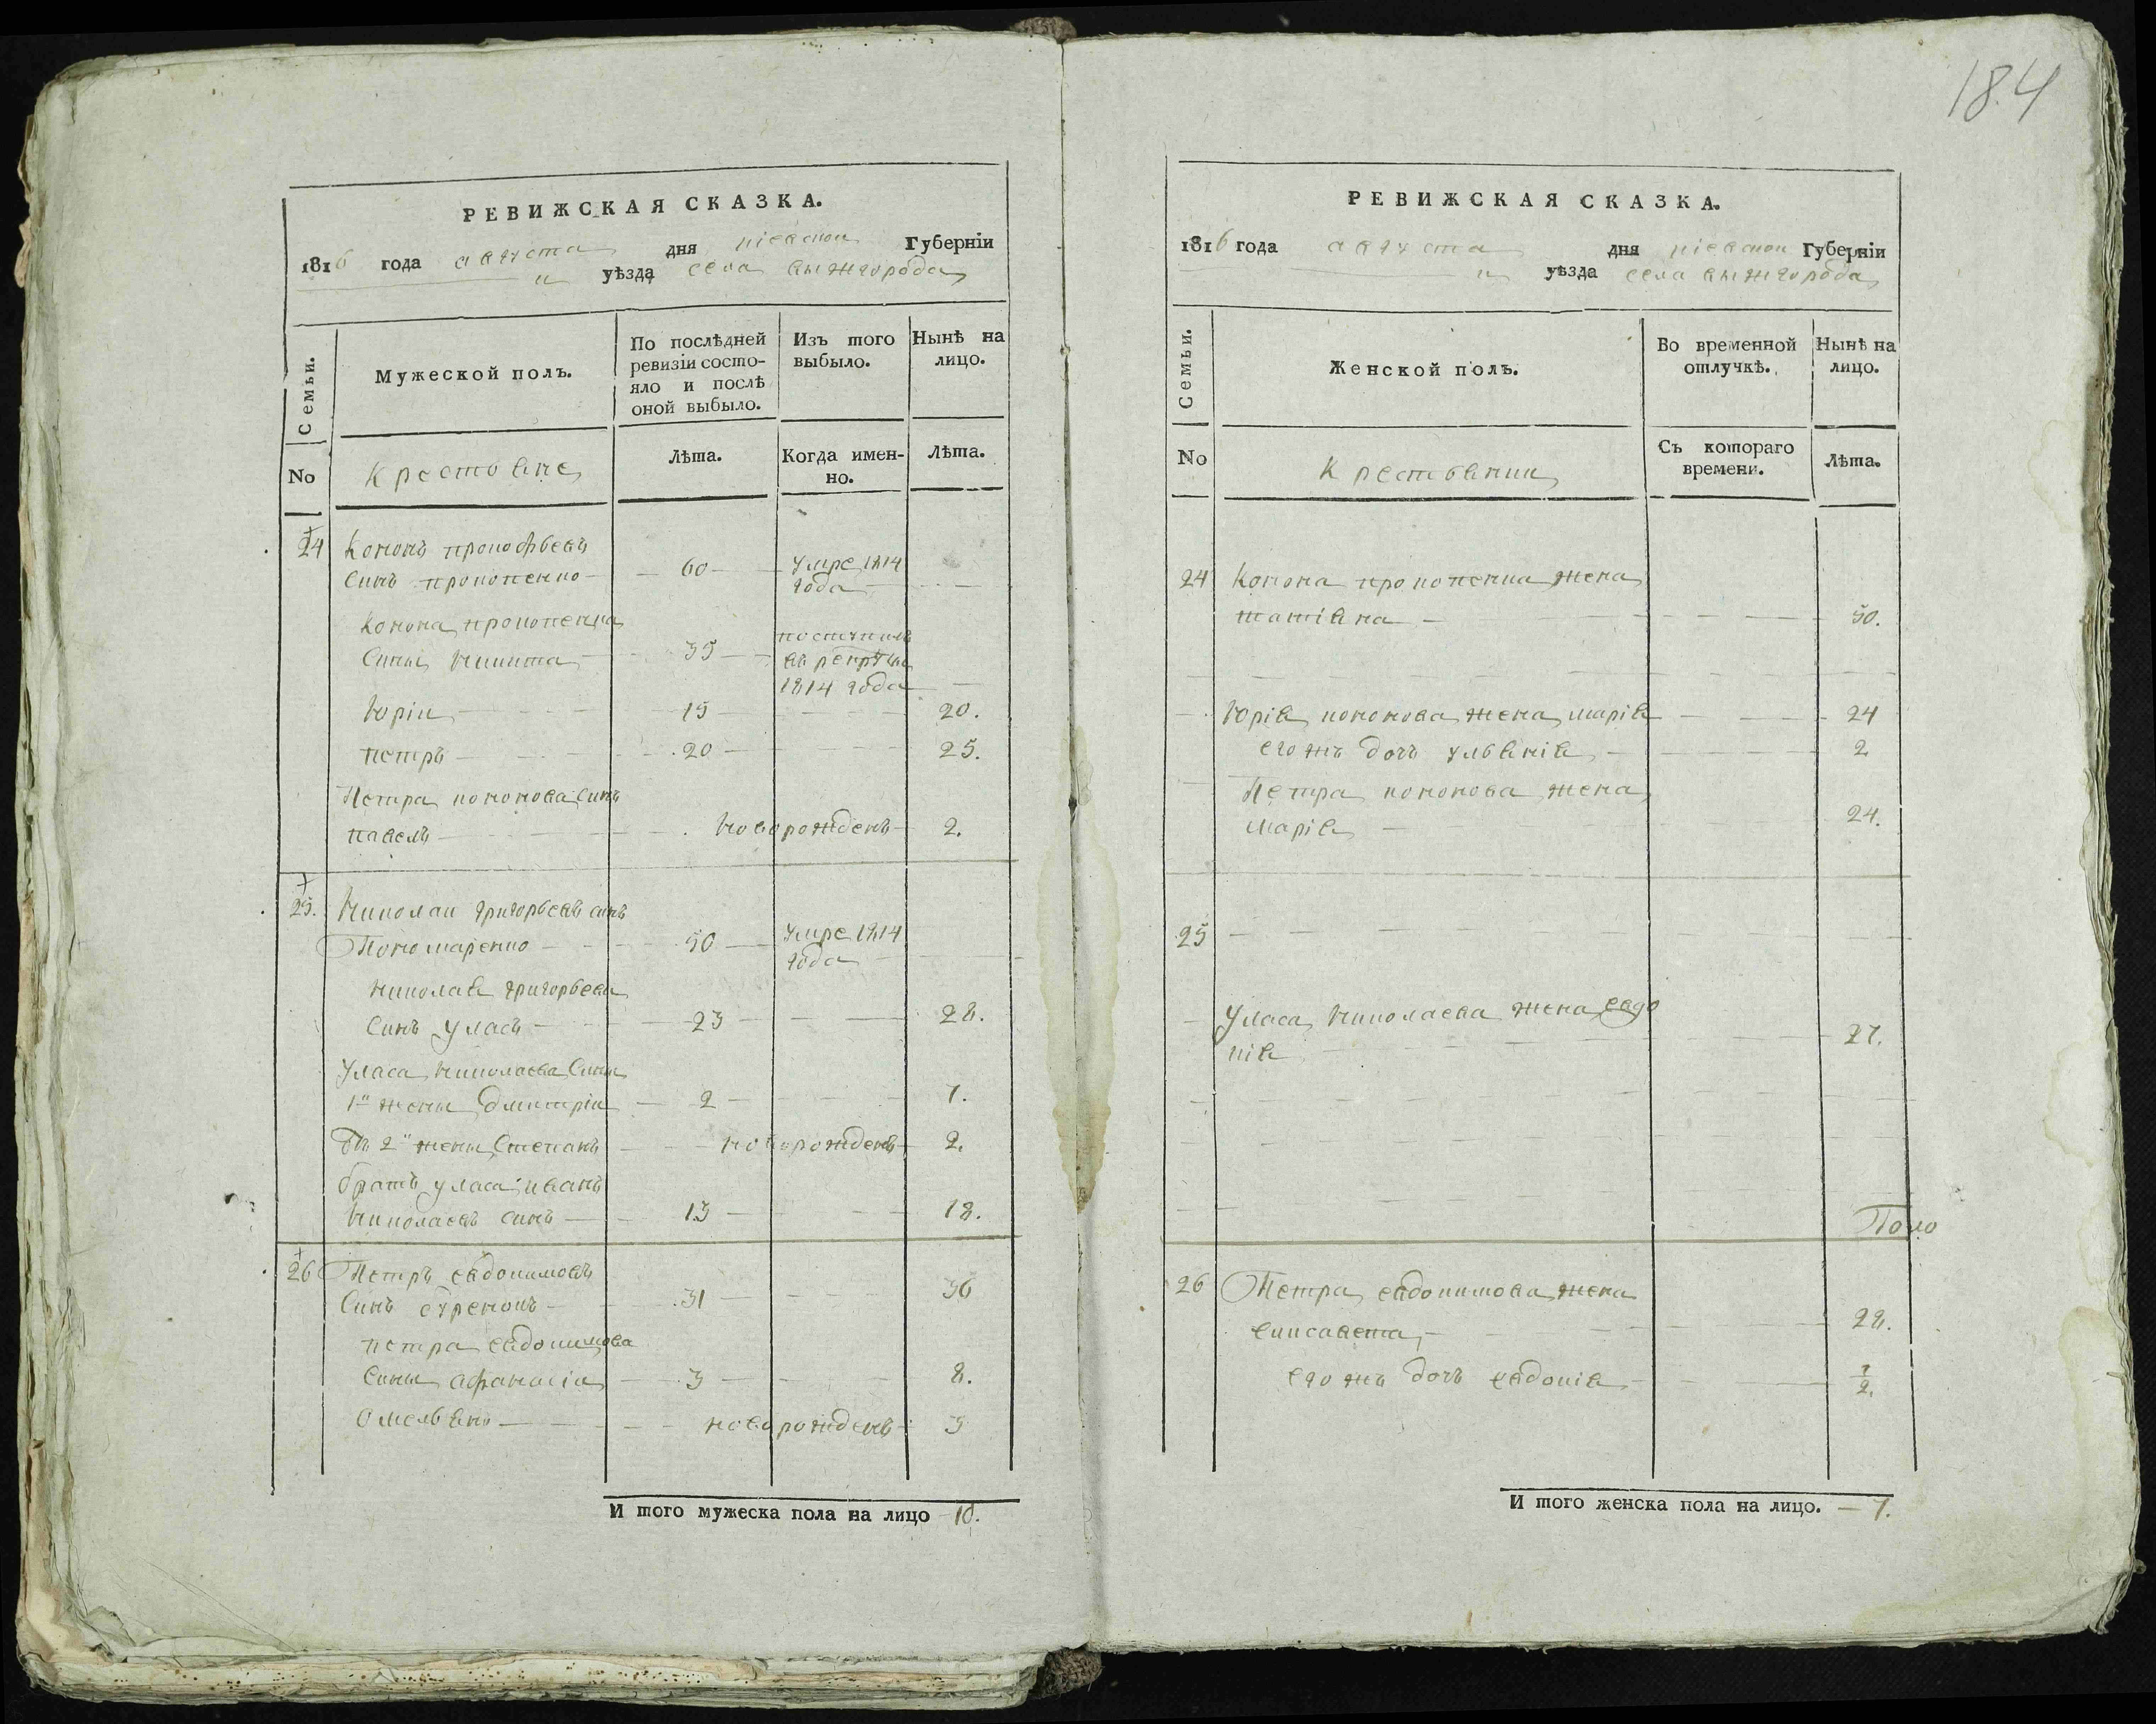 184
РЕВИЖСКАЯ СКАЗКА.
1816 года августа дня кіевской Губерніи
и уѣзда села вышгорода
Семьи.
Мужеской полъ.
По послѣдней ревизіи состо-яло и послѣ оной выбыло.
Изъ того выбыло.
Нынѣ на лицо.
No
Крестьяне
Лѣта.
Когда имен-но.
Лѣта.
24 Кононъ прокофьевъ
синъ прокопенко 60 умре 1814 года
Конона прокопенка
сины Никита 35 поступилъ въ рекруты 1814 года
Юрій 15 20.
петръ 20 25.
Петра кононова синъ
павелъ новорожденъ 2.
25. Николай григорьевъ синъ
Пономаренко 50 умре 1814 года
Николая григорьева
синъ уласъ 23 28.
Уласа Николаева сины
1й жены дмитрій 2 7.
2й жены Степанъ новорожденъ 2.
братъ уласа иванъ
Николаевъ синъ 13 18.
26 Петръ евдокимовъ
синъ 31 36
петра евдокимова
сины афанасій 3 8.
Омельянъ новорожденъ 3
И того мужеска пола на лицо 10.
РЕВИЖСКАЯ СКАЗКА.
1816 года августа дня кіевской Губерніи
и уѣзда села вышгорода
Семьи.
Женской полъ.
Во временной отлучкѣ.
Нынѣ на лицо.
No
Крестьянки
Съ котораго времени.
Лѣта.
24 Конона прокопенка жена
татіяна 50.
Юрія кононова жена марія 24
его жъ дочъ ульянія 2
Петра кононова жена
марія 24.
25
Уласа Николаева жена евдо
кія 27.
26 Петра евдокимова жена
елисавета 28.
его жъ дочъ евдокія 1/2.
И того женска пола на лицо. 7.